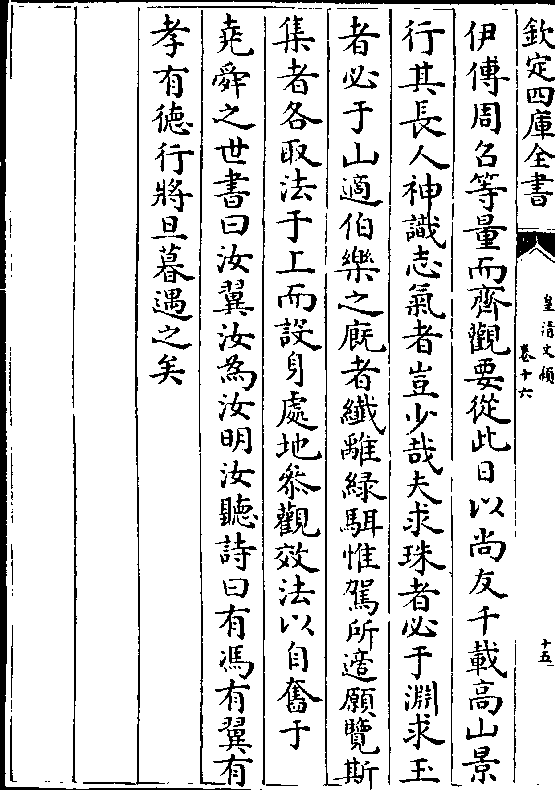 欽定四庫全書
皇清文頴
卷十六
十五
伊傅周召等量而齊觀要從此日以尚友千載高山景
行其長人神識志氣者豈少哉夫求珠者必于淵求玉
者必于山適伯樂之廐者纖離緑駬惟駕所適願覽斯
集者各取法于工而設身處地叅觀效法以自奮于
堯舜之世書曰汝翼汝為汝明汝聽詩曰有馮有翼有
孝有德行將旦暮遇之矣